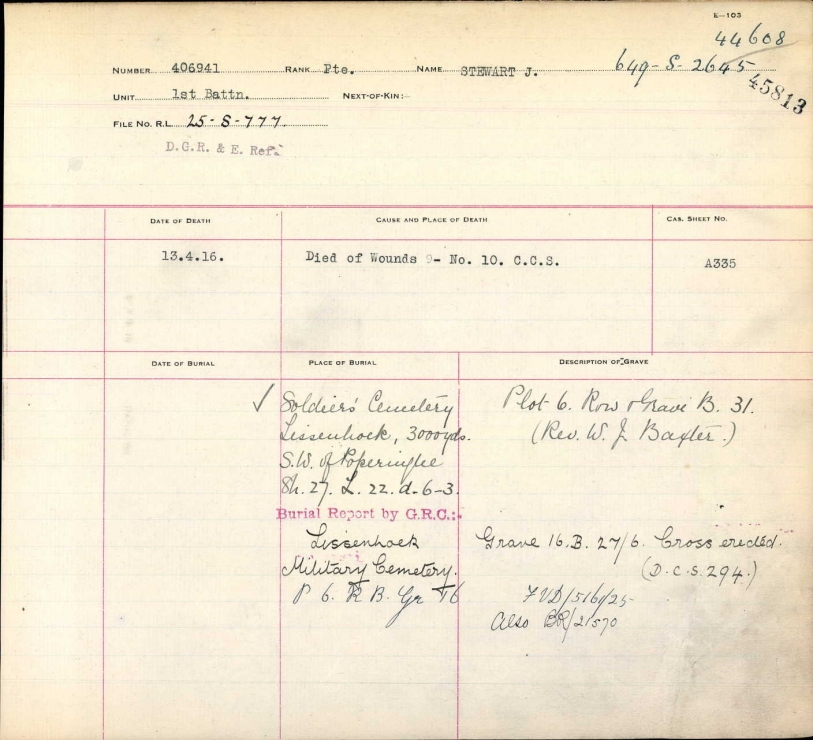 E—103
44608
649-S-2645
45813
NUMBER 406941 RANK Pte. NAME STEWART J.
UNIT 1st Battn. NEXT-OF-KIN:-
FILE NO. R.L. 25-S-777.
D.G.R. & E. Ref.
DATE OF DEATH CAUSE AND PLACE OF DEATH CAS. SHEET NO.
13.4.16. Died of Wounds - No. 10. C.C.S. A335
DATE OF BURIAL PLACE OF BURIAL DESCRIPTION OF GRAVE
✓ Soldiers' Cemetery
Lissenhoek, 3000yds.
S.W. of Poperinghe
Sh. 27. L. 22. d-6-3.
Plot 6. Row & Grave B. 31.
(Rev. W. J. Baxter.)
Burial Report by G.R.C.:-
Lissenhoek
Military Cemetery.
P 6. R B. Gr 16
Grave 16.B. 27/6. Cross erected.
(D.C.S. 294.)
7VD/5161/25-
Also BR/21570